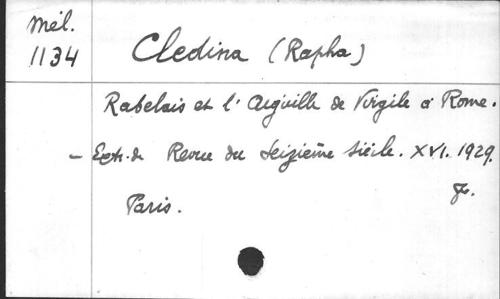 Mél.
1134
Cledina (Rapha)
Rabelais et l'Aiguille de Virgile à Rome.
– Extr. de Revue du Seizième Siècle. XVI. 1929.
Paris.